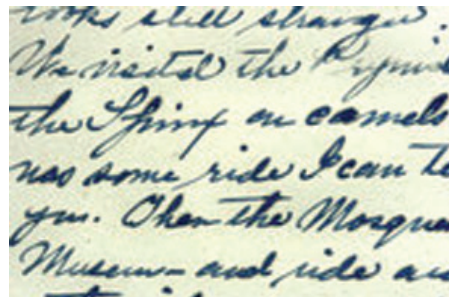 looks still stranger.
We visited the
the Spinx on camels
was some ride I can te
you. Then the Mosque
Museum - and ride